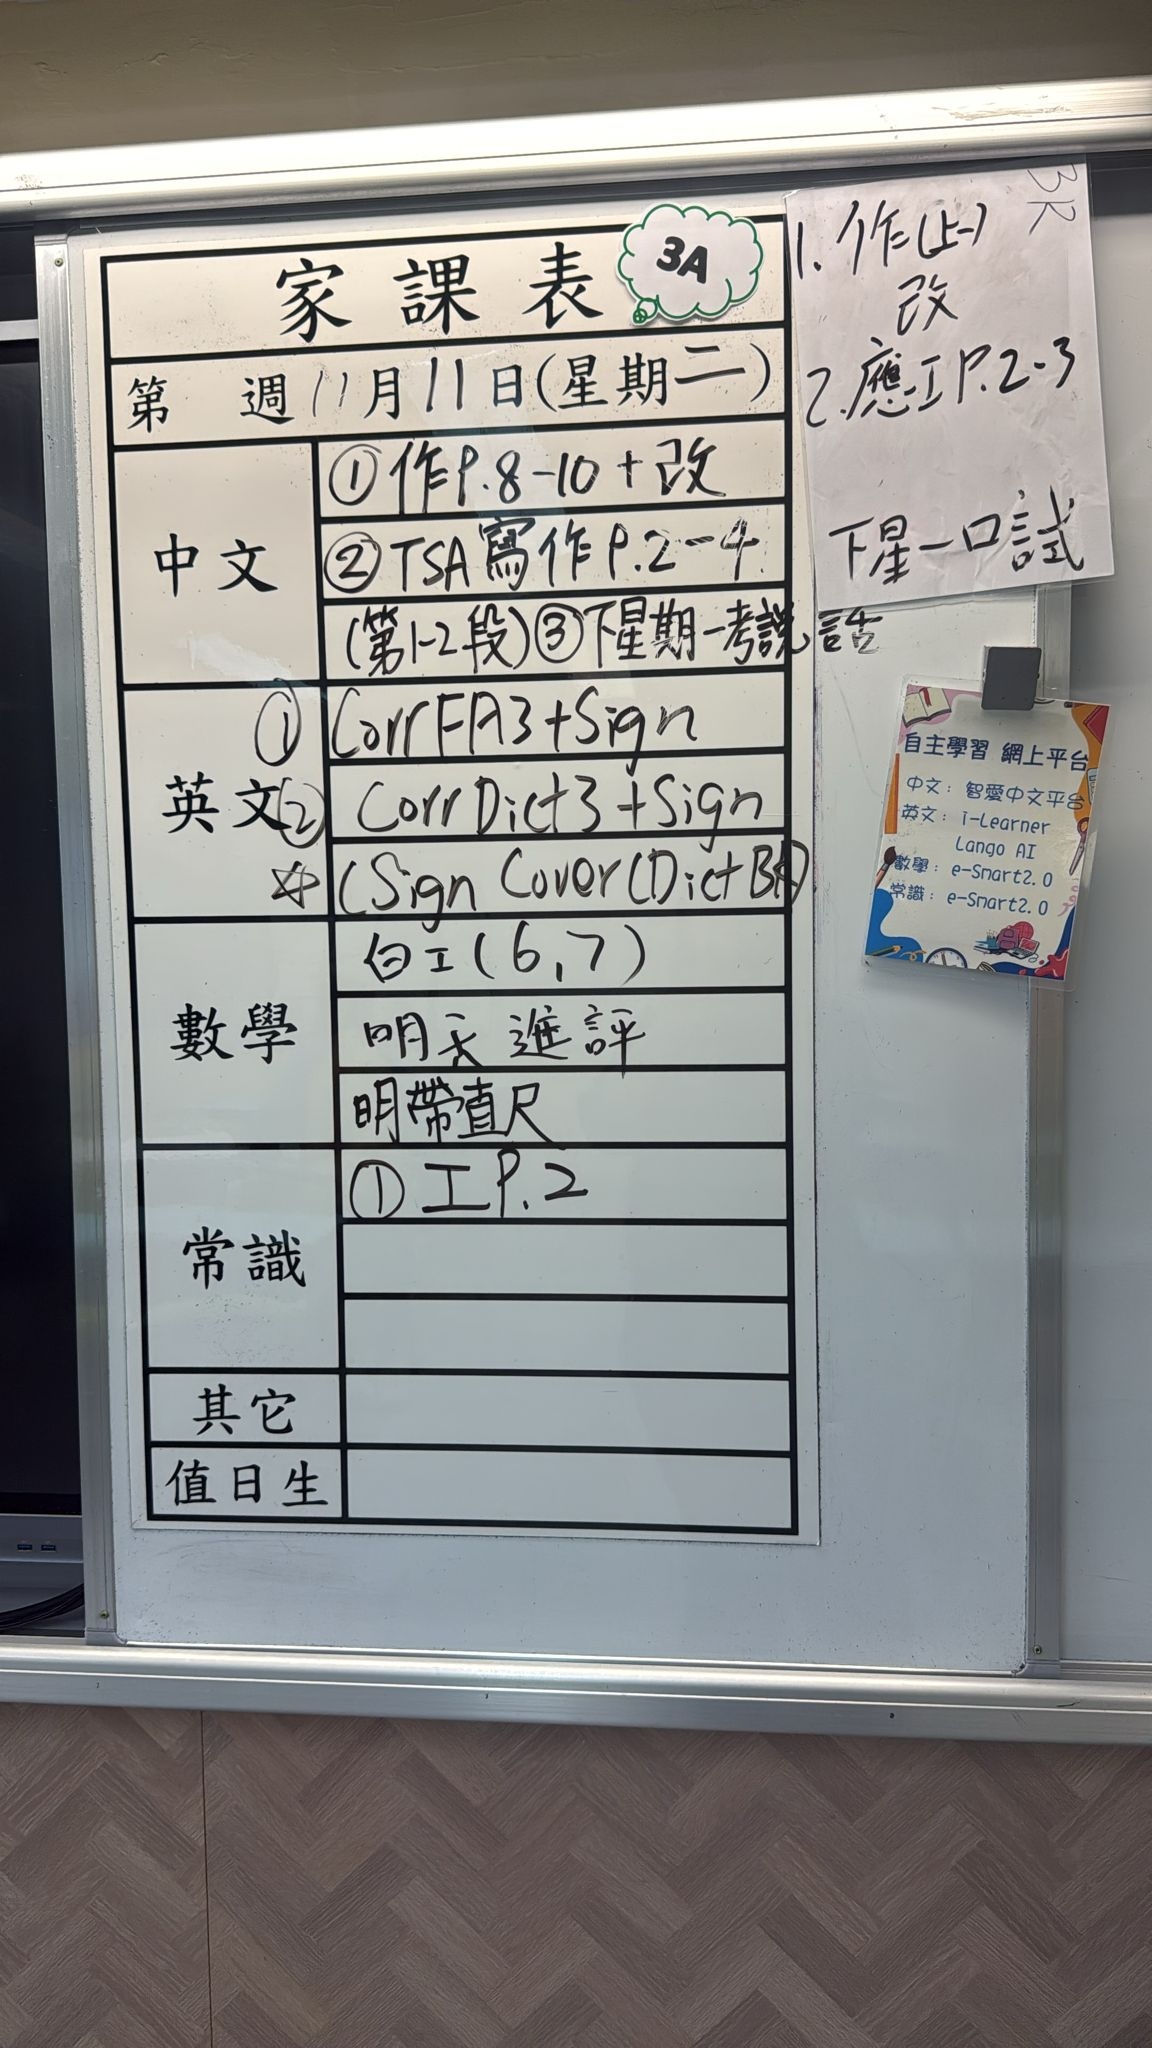 家課表
3A
第 週 11月11日(星期二)
中文
①作P.8-10+改
②TSA寫作P.2-4
(第1-2段)③下星期一考說話
英文
① Corr FA3+Sign
② Corr Dict3+Sign
☆(Sign Cover(Dict BK)
數學
白工(6,7)
明天進評
明帶直尺
常識
①工P.2
其它
值日生
1.作(上一)
改
2.應工P.2-3
下星一口試
自主學習 網上平台
中文:智愛中文平台
英文:i-Learner
Lango AI
數學:e-Smart2.0
常識:e-Smart2.0